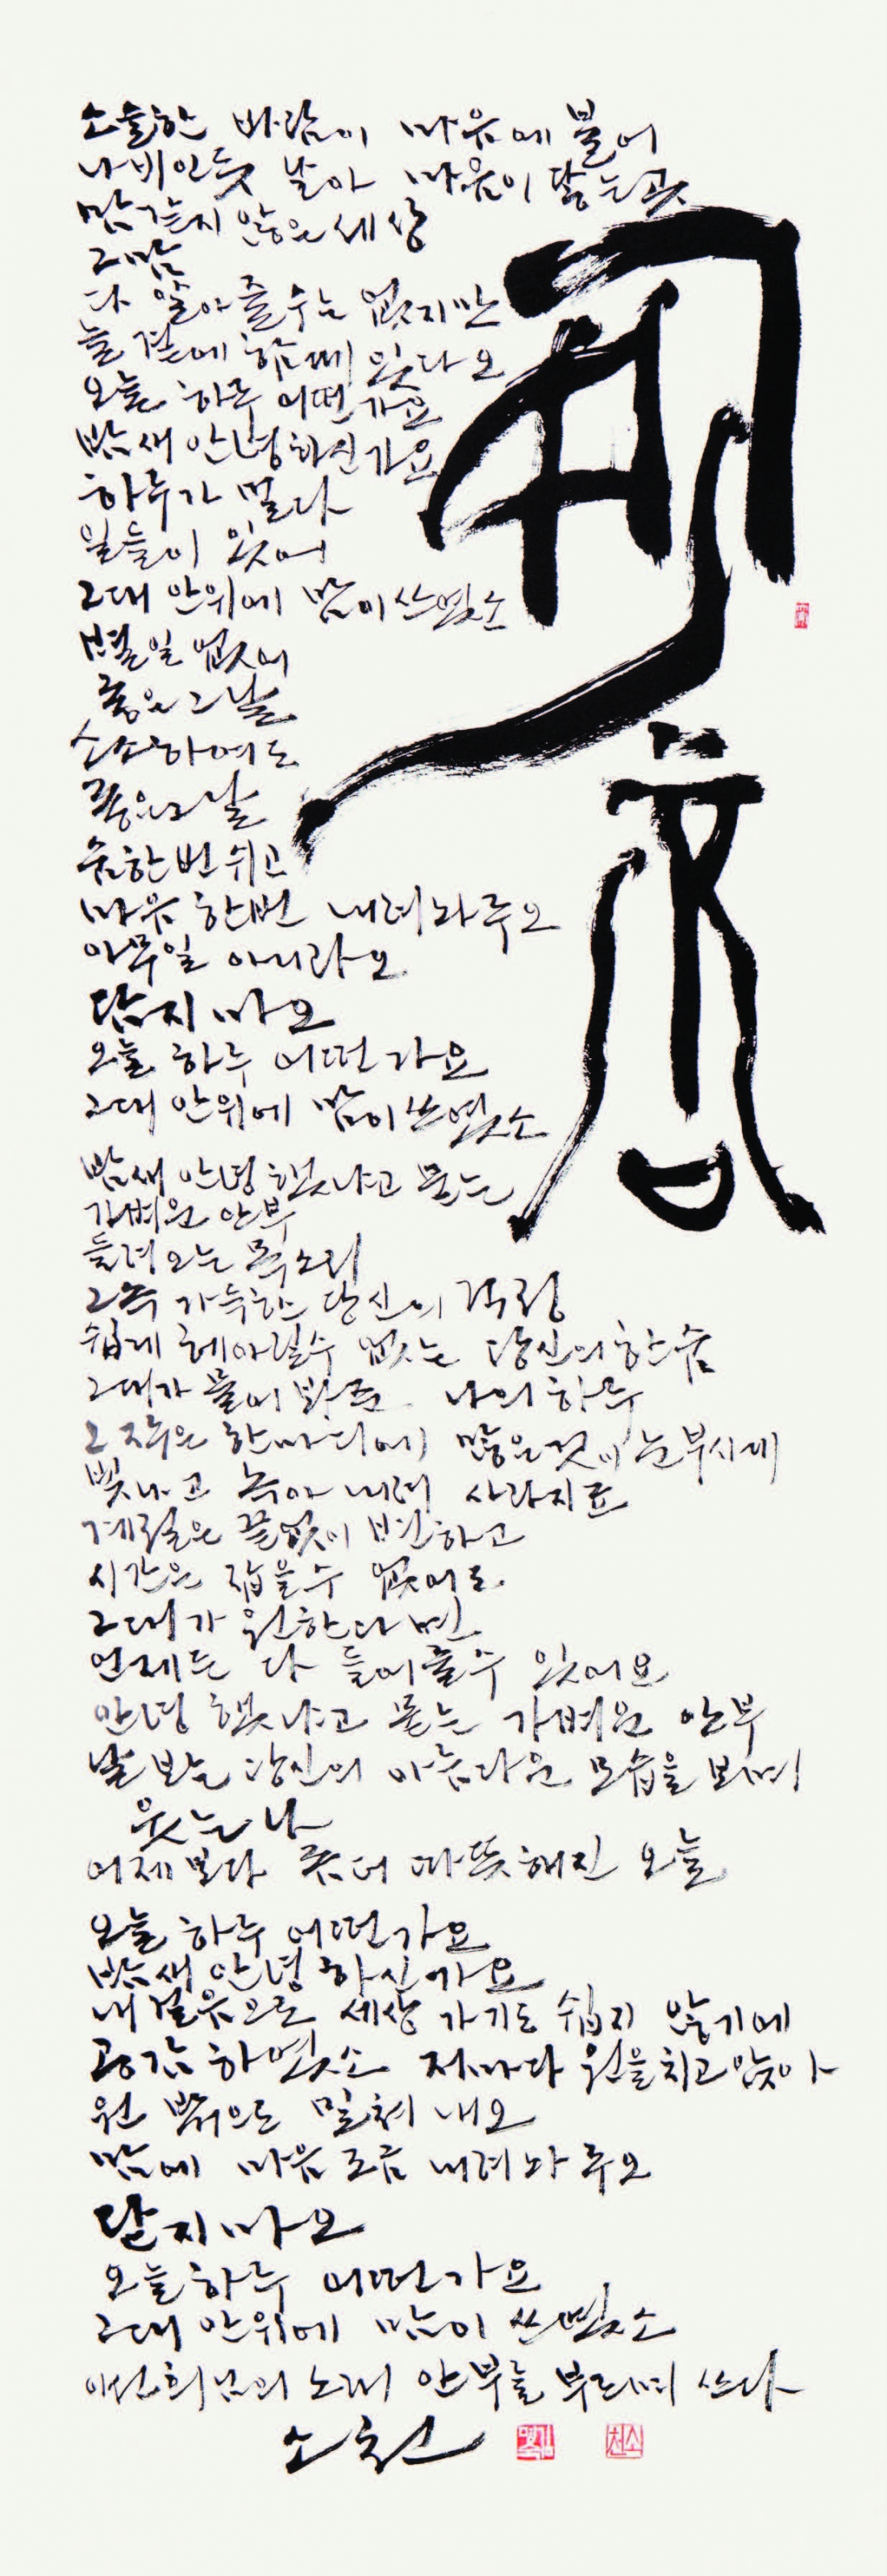 소슬한 바람이 마음에 불어
나비인듯 날아 마음이 닿는곳
맘같지 않은 세상
그맘
다 알아줄수는 없지만
늘 곁에 함께 있다오
오늘 하루 어떤가요
밤새 안녕하신가요
하루가 멀다
일들이 있어
그대 안위에 맘이 쓰였소
별일 없어
좋은 그날
소소하여도
좋은 그날
숨한번 쉬고
마음 한번 내려놔주오
아무일 아니라오
닫지 마오
오늘 하루 어떤가요
그대 안위에 맘이 쓰였소
밤새 안녕했냐고 묻는
가벼운 안부
들려오는 목소리
그속 가득한 당신의 걱정
쉽게 헤아릴수 없는 당신의 한숨
그대가 물어봐준 나의 하루
그 작은 한마디에 많은것이 눈부시게
빛나고 녹아내려 사라지죠
계절은 끝없이 변하고
시간은 잡을수 없어도
그대가 원한다면
언제든 다 들어줄수 있어요
안녕했냐고 묻는 가벼운 안부
날 보는 당신의 아름다운 모습을 보며
웃는 나
어제보다 좀더 따뜻해진 오늘
오늘 하루 어떤가요
밤새 안녕하신가요
내 걸음으로 세상 가기도 쉽지 않기에
공감하였소 저마다 원을 치고 앉아
원 밖으로 밀쳐내오
맘에 마음 조금 내려놔주오
닫지마오
오늘하루 어떤가요
그대 안위에 맘이 쓰였소
이선희님의 노래 안부를 부르며 쓰다
소천
소천